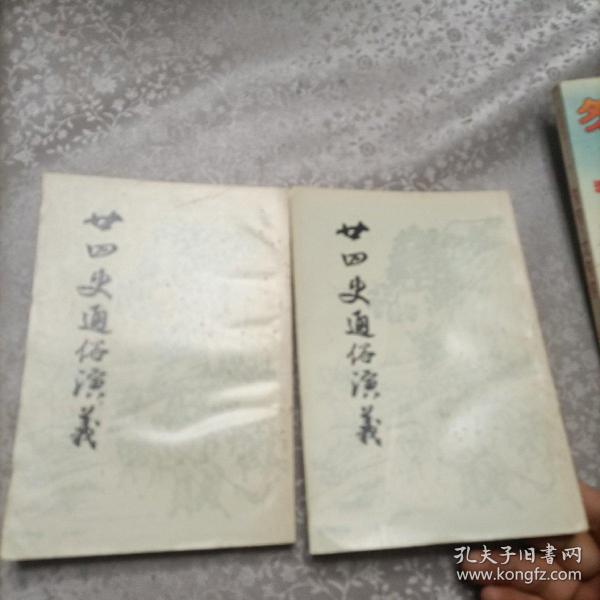 廿四史通俗演義
廿四史通俗演義
孔夫子旧书网
www.kongfz.com